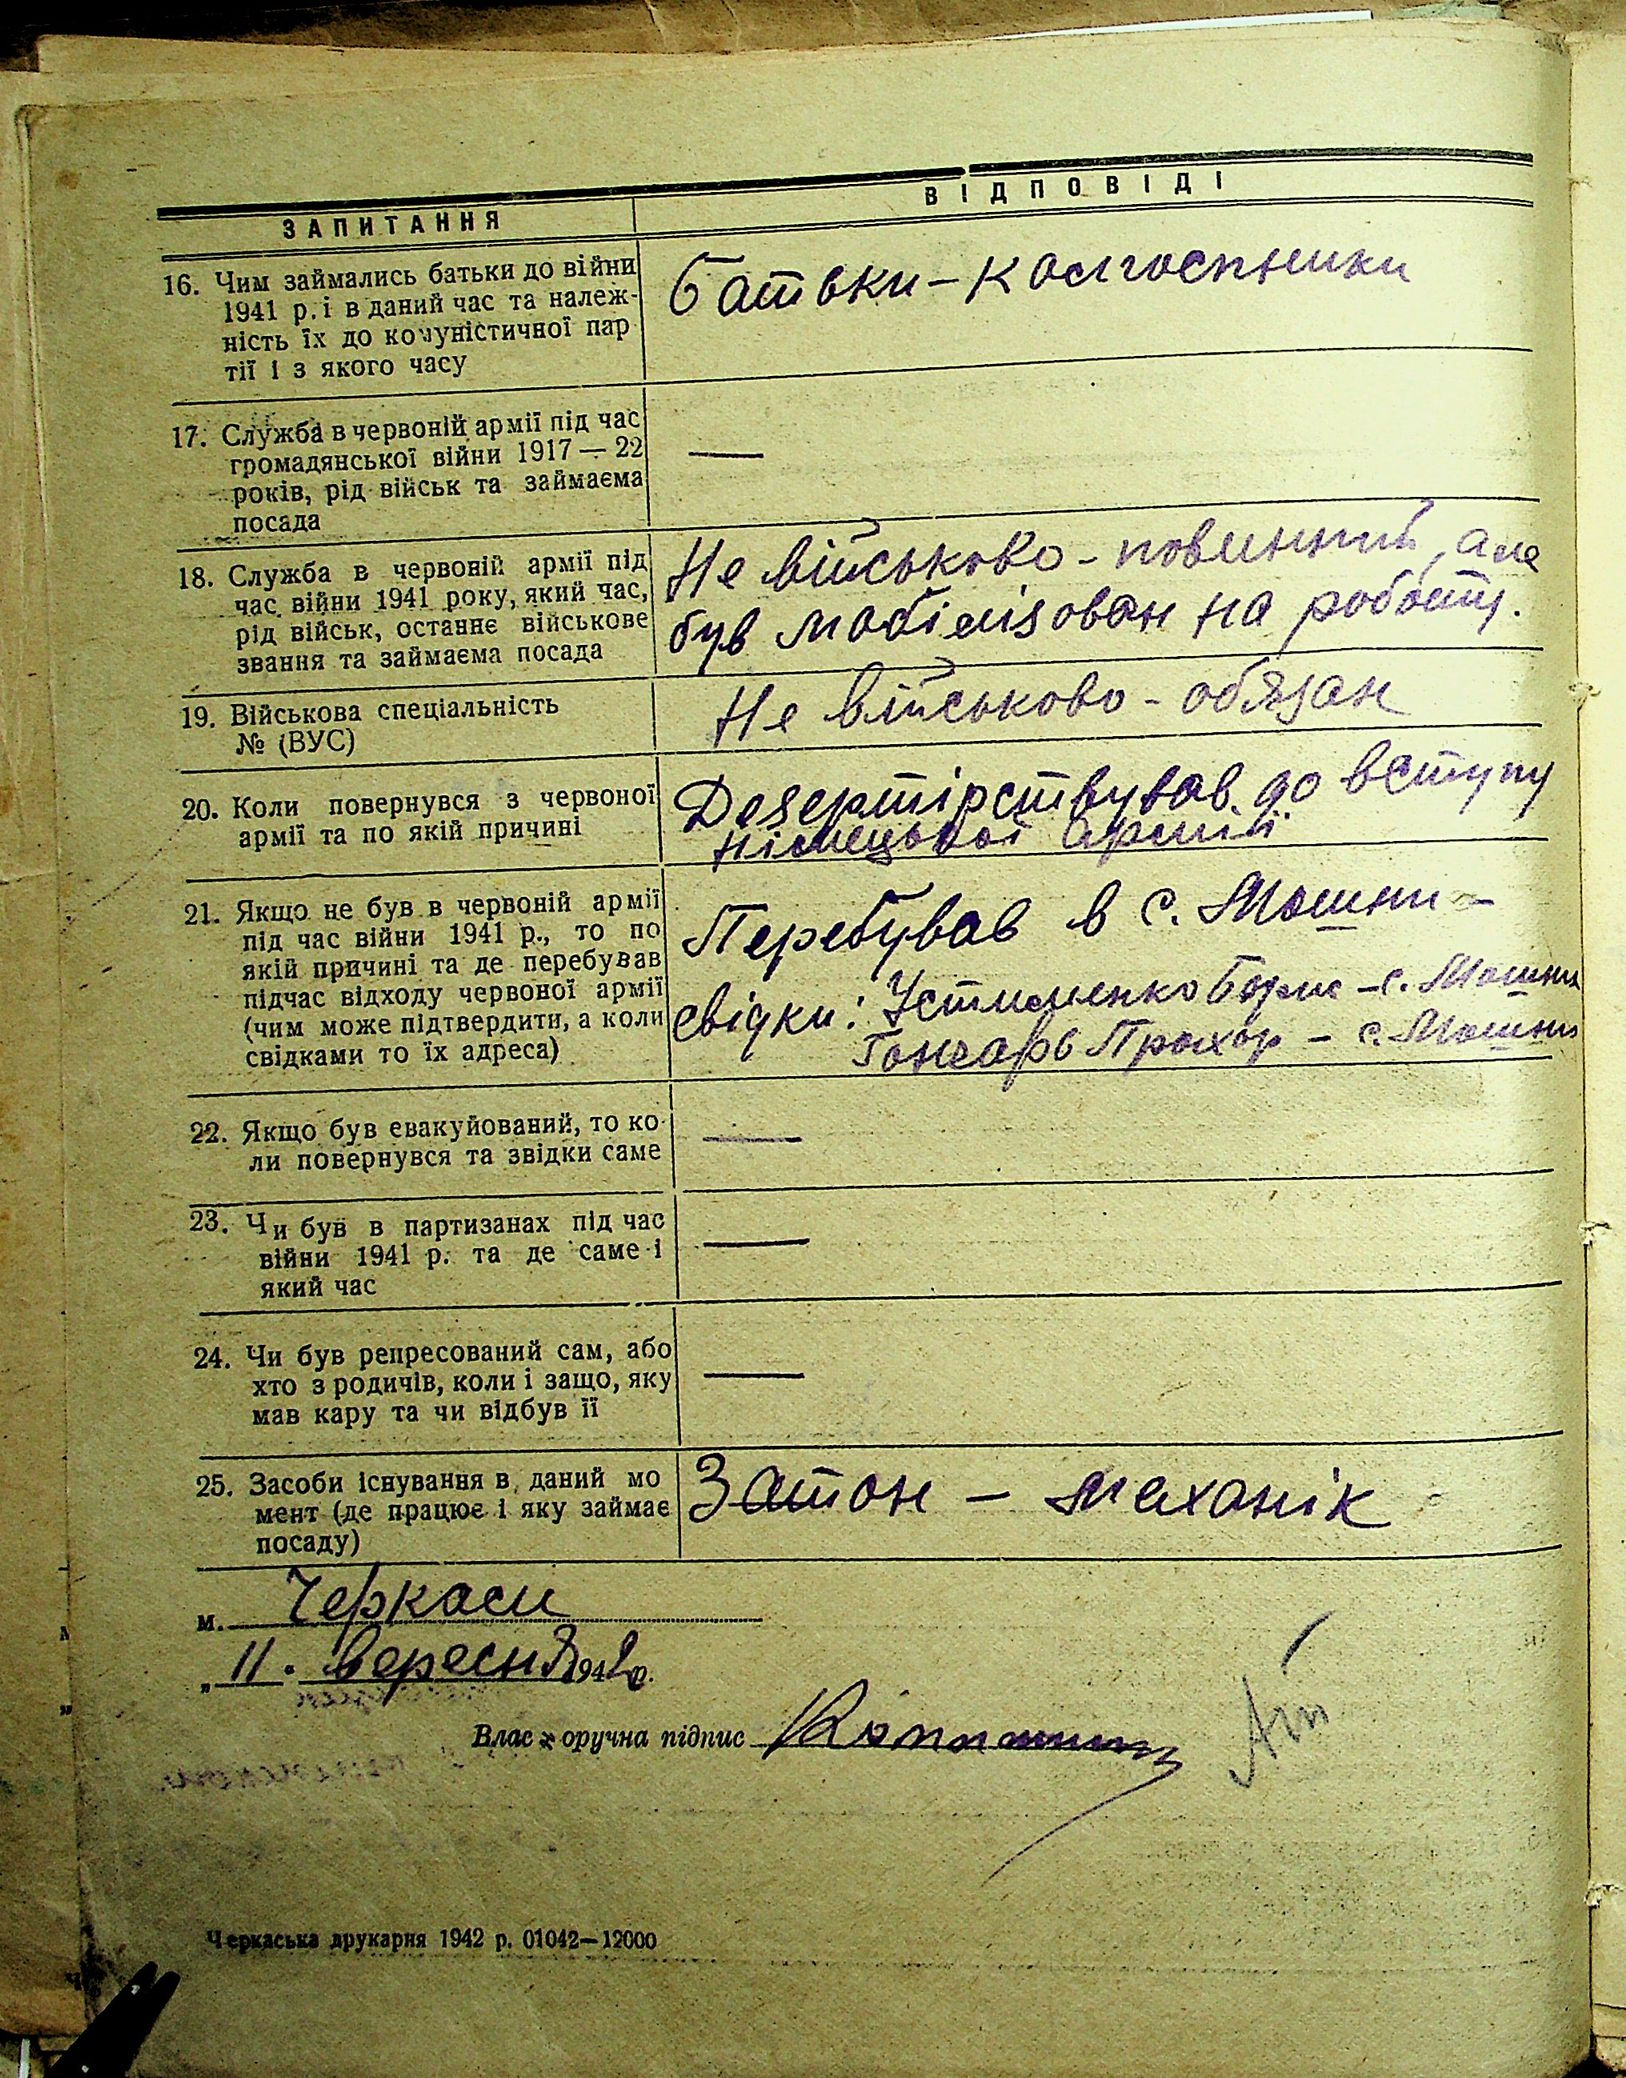 ЗАПИТАННЯ
ВІДПОВІДІ
16. Чим займались батьки до війни
1941 р. і в даний час та належ-
ність їх до комуністичної пар
тії і з якого часу
Батьки – колгоспники
17. Служба в червоній армії під час
громадянської війни 1917 — 22
років, рід військ та займаєма
посада
—
18. Служба в червоній армії під
час війни 1941 року, який час,
рід військ, останнє військове
звання та займаєма посада
Не військово-повинний, але
був мобілізован на роботу.
19. Військова спеціальність
№ (ВУС)
Не військово-обязан
20. Коли повернувся з червоної
армії та по якій причині
Дезертірствував до вступу
німецької армії
21. Якщо не був в червоній армії
під час війни 1941 р., то по
якій причині та де перебував
підчас відходу червоної армії
(чим може підтвердити, а коли
свідками то їх адреса)
Перебував в с. Мошни –
свідки: Устименко Борис – с. Мошни
Гончарь Прохор – с. Мошни
22. Якщо був евакуйований, то ко-
ли повернувся та звідки саме
—
23. Чи був в партизанах під час
війни 1941 р. та де саме і
який час
—
24. Чи був репресований сам, або
хто з родичів, коли і защо, яку
мав кару та чи відбув її
—
25. Засоби існування в даний мо
мент (де працює і яку займає
посаду)
Затон – механік
м. Черкаси
„11. вересня 1942 р.
Влас оручна підпис
Черкаська друкарня 1942 р. 01042—12000